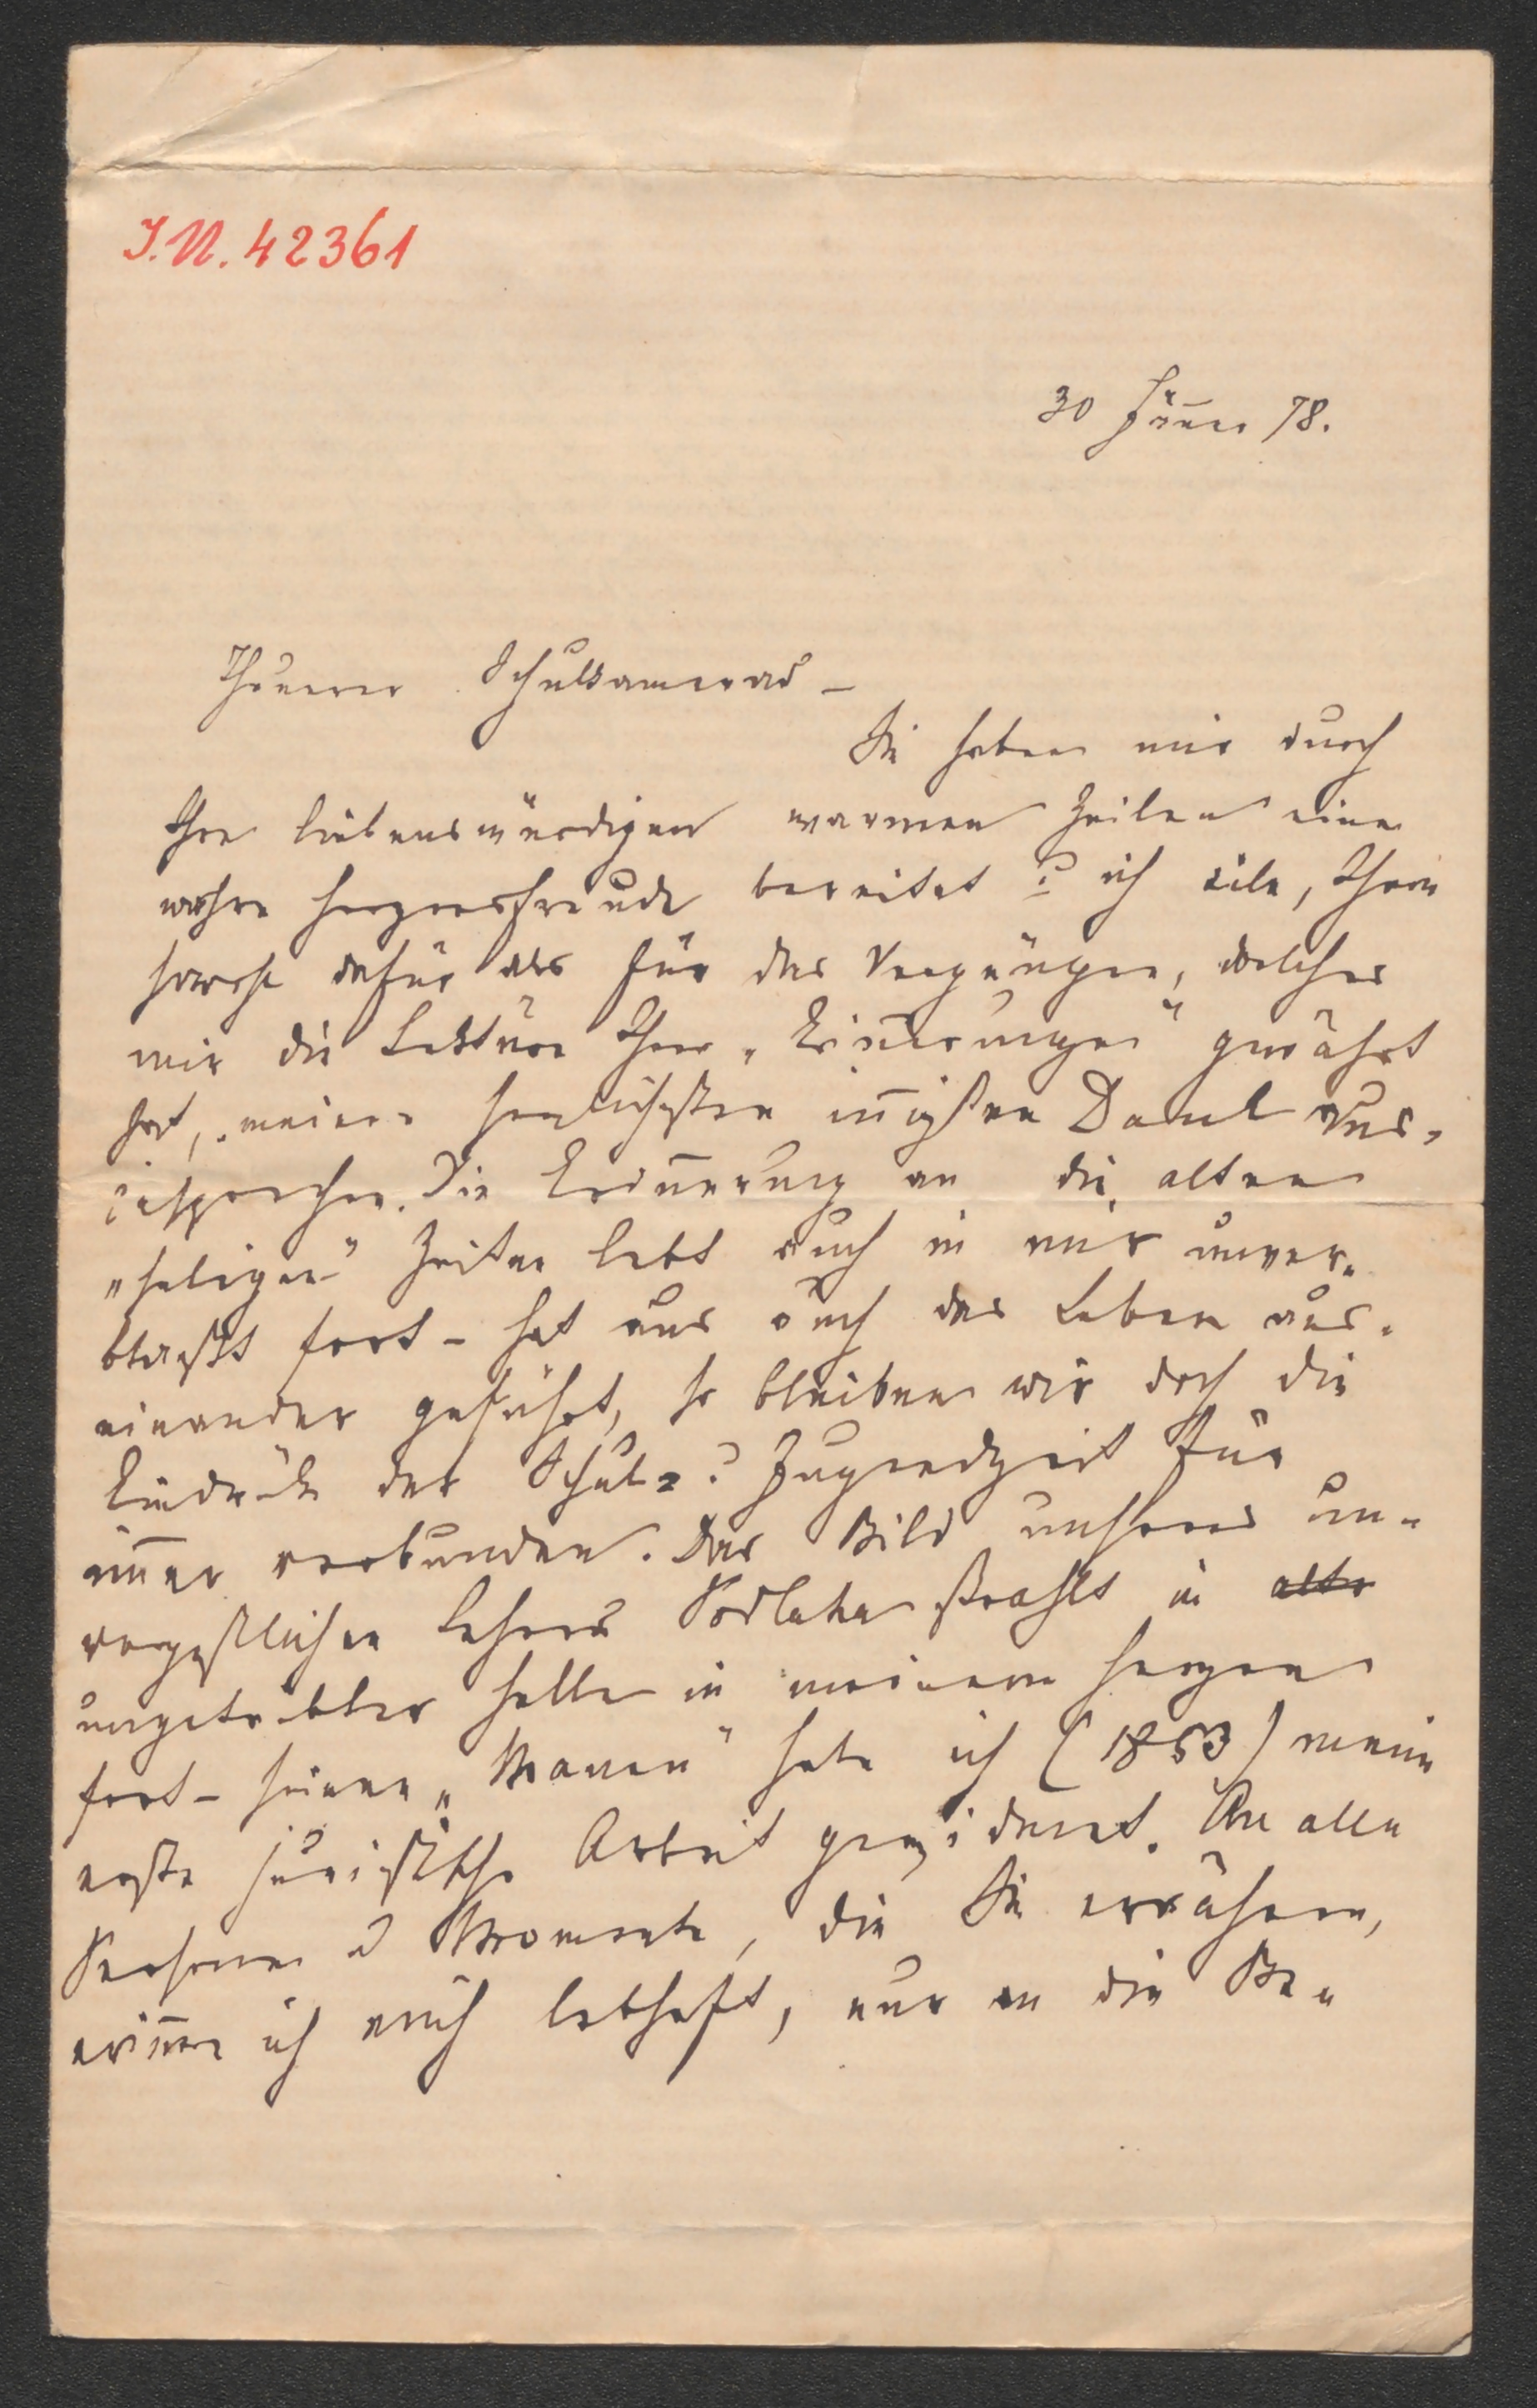 I.N. 42361
30 Jänner 78.
Theuerer Schulkamerad –
Sie haben mir durch
Ihre liebenswürdigen warmen Zeilen eine
wahre Herzensfreude bereitet u ich eile, Ihnen
sowohl dafür als für das Vergnügen, welches
mir die Lektüre Ihrer „Erin̄erungen" gewährt
hat, meinen herzlichsten in̄igsten Dank aus-
zusprechen. Die Erin̄erung an die alten
„seligen" Zeiten lebt auch in mir unver-
blaßt fort – hat uns auch das Leben aus-
einander geführt, so bleiben wir doch die
Eindrücke der Schul- u Jugendzeit für
im̄er verbunden. Das Bild unseres un-
vergeßlichen Lehrers Podlaha strahlt in alter
ungetrübter Helle in meinem Herzen
fort – seinen „Manen" habe ich (1853) meine
erste juristische Arbeit gewidmet. An alle
Personen u Momente, die Sie erwähnen,
erin̄ere ich mich lebhaft, nur an die Be-